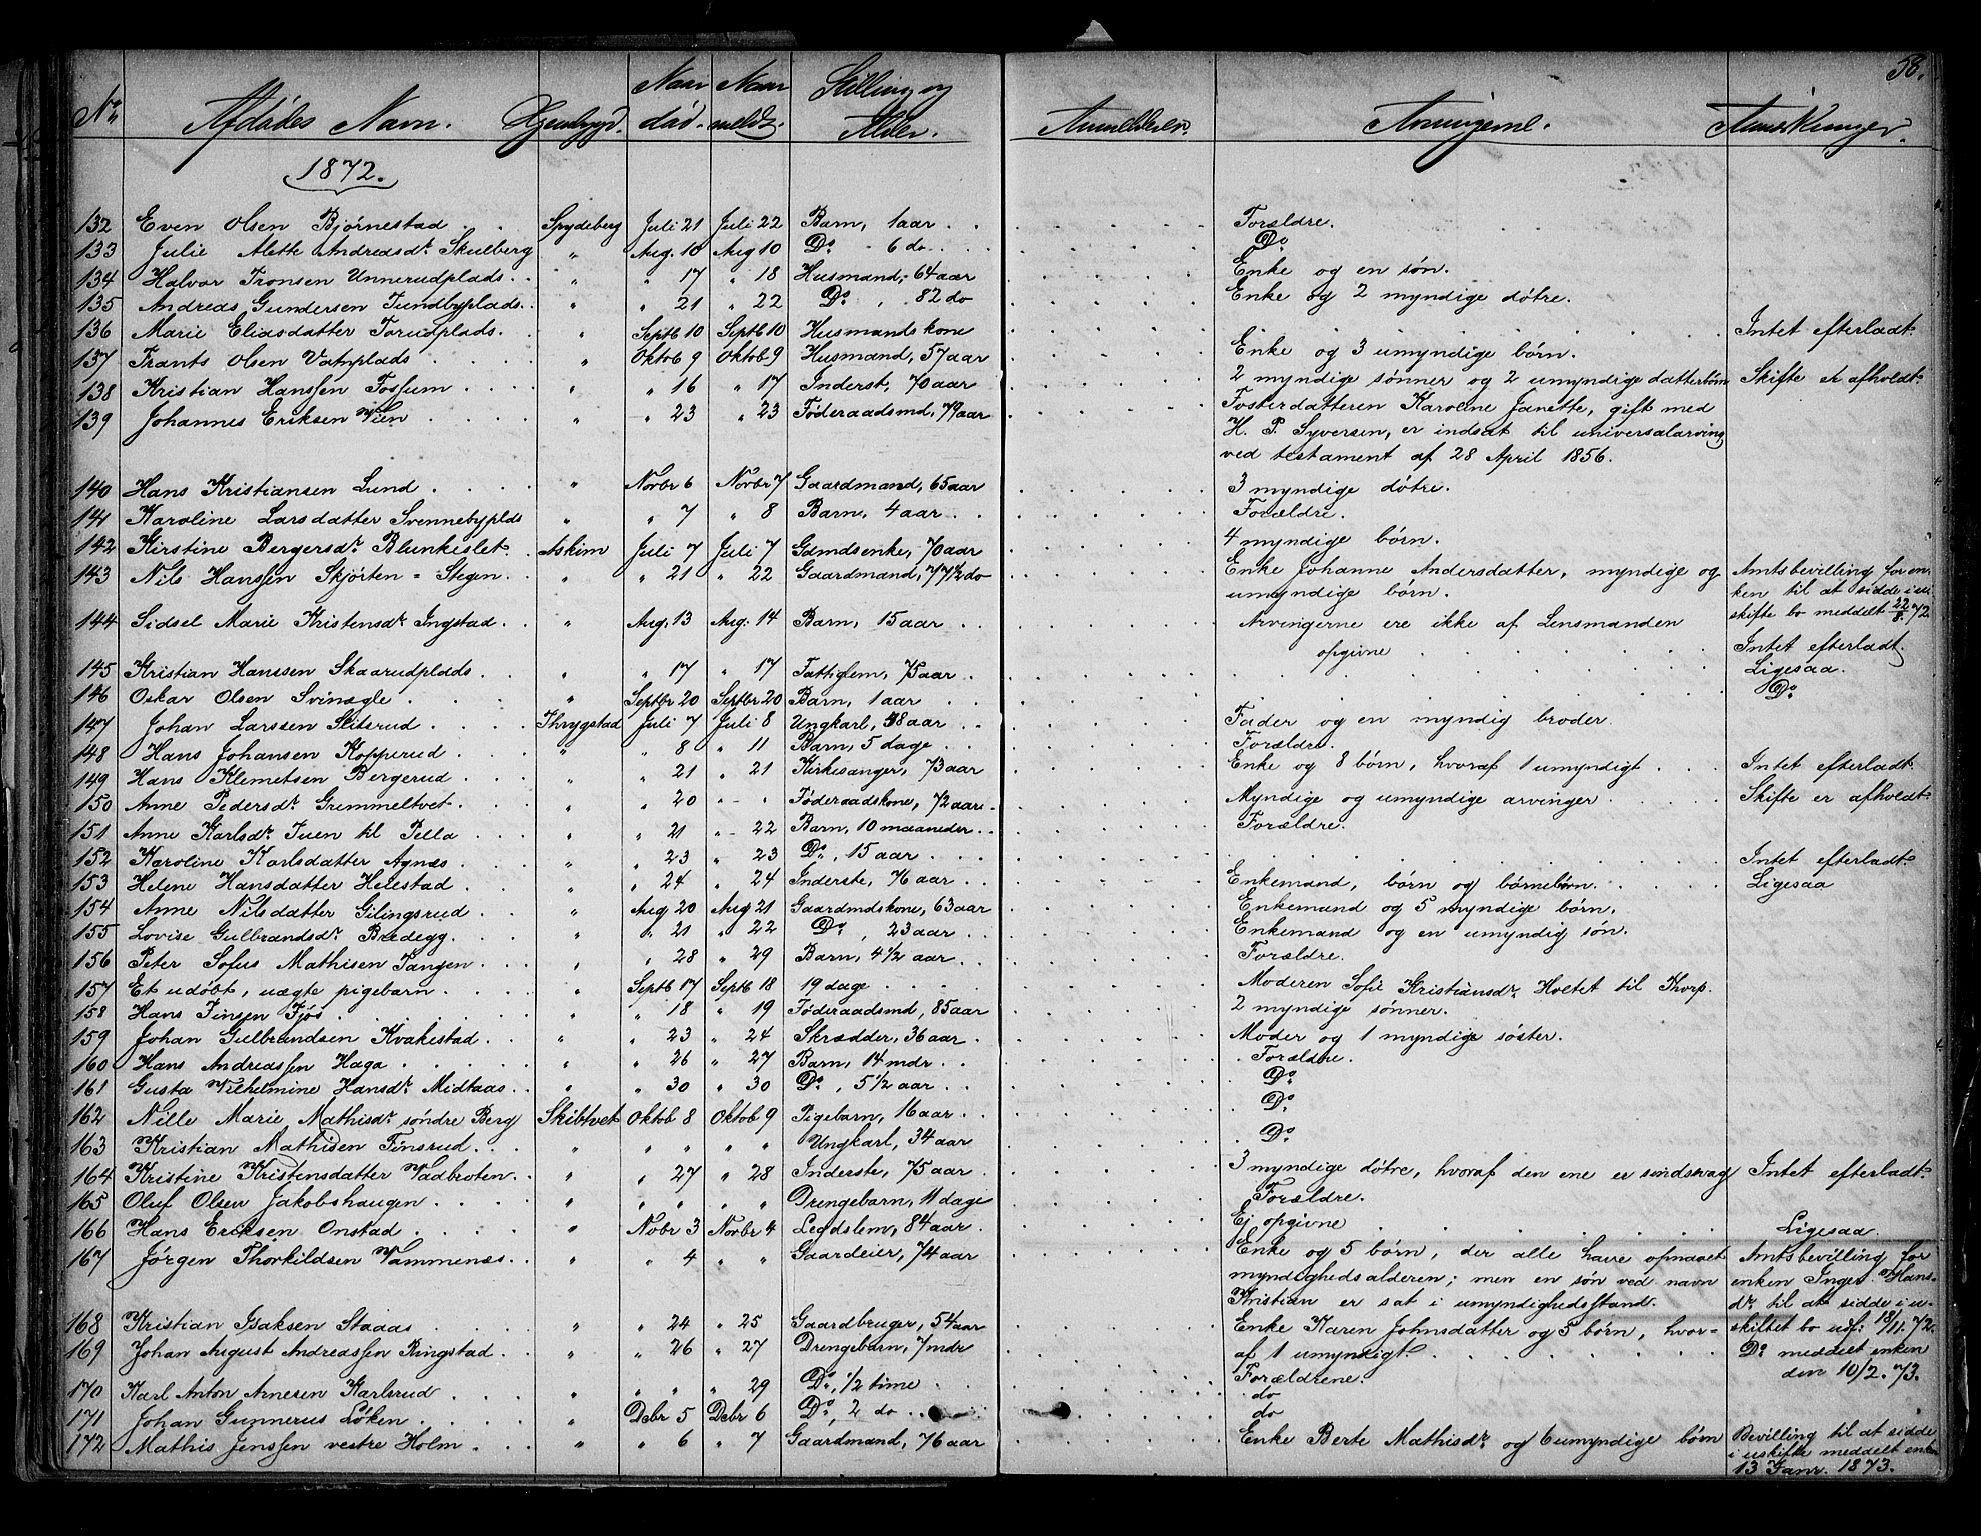 58.
No. Afdødes Navn. Hjembygd. Naar død. Naar meldt. Stilling og Alder. Anmelderen. Arvingerne. Anmerkninger.
1872.
132 Even Olsen Bjørnestad Spydeberg Juli 21 Juli 22 Barn, 1 aar Forældre.
133 Julie Alette Andreasdr Skulberg " Aug. 10 Aug 10 Do - 6 do Do
134 Halvor Tronsen Unnerudplads " " 17 " 18 Husmand, 64 aar Enke og en søn.
135 Andreas Gundersen Tundbyplads " " 21 " 22 Do, 82 do Enke og 2 myndige døtre.
136 Marie Eliasdatter Torudplads " Septb 10 Septb 10 Husmandskone Intet efterladt
137 Frants Olsen Vatnplads " Oktob 9 Oktob 9 Husmand, 57 aar Enke og 3 umyndige børn.
138 Kristian Hanssen Fossum " " 16 " 17 Inderst, 70 aar 2 myndige sønner og 2 umyndige datterbørn Skifte er afholdt.
139 Johannes Eriksen Viin " " 23 " 23 Føderaadsmd, 79 aar Fosterdatteren Karoline Janette, gift med
H. P. Syversen, er indsat til universalarving
ved testament af 28 April 1856.
140 Hans Kristiansen Lund " Novbr 6 Novbr 7 Gaardmand, 65 aar 3 myndige døtre.
141 Karoline Larsdatter Svennebyplds " " 7 " 8 Barn, 4 aar Forældre.
142 Kirstine Bergersdr Blunkeslet Askim Juli 7 Juli 7 Gdmdsenke, 70 aar 4 myndige børn.
143 Nils Hanssen Skjørten = Stegen " " 21 " 22 Gaardmand, 77 1/2 do Enke Johanne Andersdatter, myndige og Amtsbevilling for en-
umyndige børn. ken til at sidde i u-
144 Sidsel Marie Kristensdr Ingstad " Aug. 13 Aug. 14 Barn, 15 aar Arvingerne ere ikke af Lensmanden skifte bo meddelt 22/8. 72.
opgivne Intet efterladt.
145 Kristian Hanssen Skaarudplads " " 17 " 17 Fattiglem, 75 aar Ligesaa.
146 Oskar Olsen Svinægle " Septbr 20 Septbr 20 Barn, 1 aar Do
147 Johan Larssen Slitsrud Thrygstad Juli 7 Juli 8 Ungkarl, 38 aar Fader og en myndig broder.
148 Hans Johansen Kopperud " " 8 " 11 Barn, 5 dage Forældre.
149 Hans Klemetsen Bergerud " " 21 " 21 Kirkesanger, 73 aar Enke og 8 børn, hvoraf 1 umyndigt Intet efterladt.
150 Anne Pedersdr Grimmeltvet " " 20 " - " Føderaadskone, 72 aar Myndige og umyndige arvinger Skifte er afholdt.
151 Anne Karlsdr Tuen til Pella " " 21 " - 22 Barn, 10 maaneder Forældre.
152 Karoline Karlsdatter Agnæs " " 23 " 23 Do, 15 aar Intet efterladt.
153 Helene Hansdatter Helestad " " 24 " 24 Inderste, 76 aar Enkemand, børn og børnebørn. Ligesaa
154 Anne Nilsdatter Gilingsrud " Aug 20 Aug 21 Gaardmdskone, 63 aar Enkemand og 5 myndige børn.
155 Lovise Gulbrandsdr Bredegg. " " 21 " 22 Do, 23 aar Enkemand og en umyndig søn.
156 Peter Sofus Mathisen Tangen " " 28 " 29 Barn, 4 1/2 aar Forældre.
157 Et udøbt, uægte pigebarn " Septb 17 Septb 18 19 dage Moderen Sofie Kristiansdr Holtet til Thorp.
158 Hans Finsen Fjøs " " 18 " 19 Føderaadsmd, 85 aar 2 myndige sønner.
159 Johan Gulbrandsen Kvakestad " " 23 " 24 Skrædder, 36 aar Moder og 1 myndige søster.
160 Hans Andreassen Haga " " 26 " 27 Barn, 14 mdr Forældre.
161 Gusta Vilhelmine Hansdr Midtaas " " 30 " 30 Do, 5 1/2 aar Do
162 Nille Marie Mathisdr søndre Berg Skibtvet Oktob 8 Oktob 9 Pigebarn, 16 aar Do
163 Kristian Mathisen Finsrud " " " " " Ungkarl, 34 aar Do
164 Kristine Kristensdatter Vadbroten " " 27 " 28 Inderste, 75 aar 3 myndige døtre, hvoraf den ene er sindssvag Intet efterladt.
165 Oluf Olsen Jakobshaugen " " " " " Drengebarn, 11 dage Forældre.
166 Hans Eriksen Onstad " Novbr 3 Novbr 4 Legdslem, 84 aar Ej opgivne Ligesaa.
167 Jørgen Thorkildsen Vammenæs " " 4 " " Gaardeier, 74 aar Enke og 5 børn, der alle have opnaaet Amtsbevilling for
myndighedsalderen; men en søn ved navn enken Inger Hans-
Kristian er sat i umyndighedsstand. dr. til at sidde i u-
168 Kristian Isaksen Staaas " " 24 " 25 Gaardbruger, 54 aar Enke Karen Johnsdatter og 5 børn, hvor= skiftet bo udf: 18/11. 72.
169 Johan August Andreassen Ringstad " " 26 " 27 Drengebarn, 7 mdr af 1 umyndigt. Do meddelt enken
Forældrene. den 10/2. 73.
170 Karl Anton Arnesen Karlsrud " " " " 29 Do, 1/2 time do
171 Johan Gunnerus Løken " Debr 5 Debr 6 Do, 2 do do
172 Mathis Jenssen vestre Holm " " 6 " 7 Gaardmand, 76 aar Enke Berte Mathisdr og 6 umyndige børn Bevilling til at sidde
i uskifte meddelt enken
13 Janr. 1873.